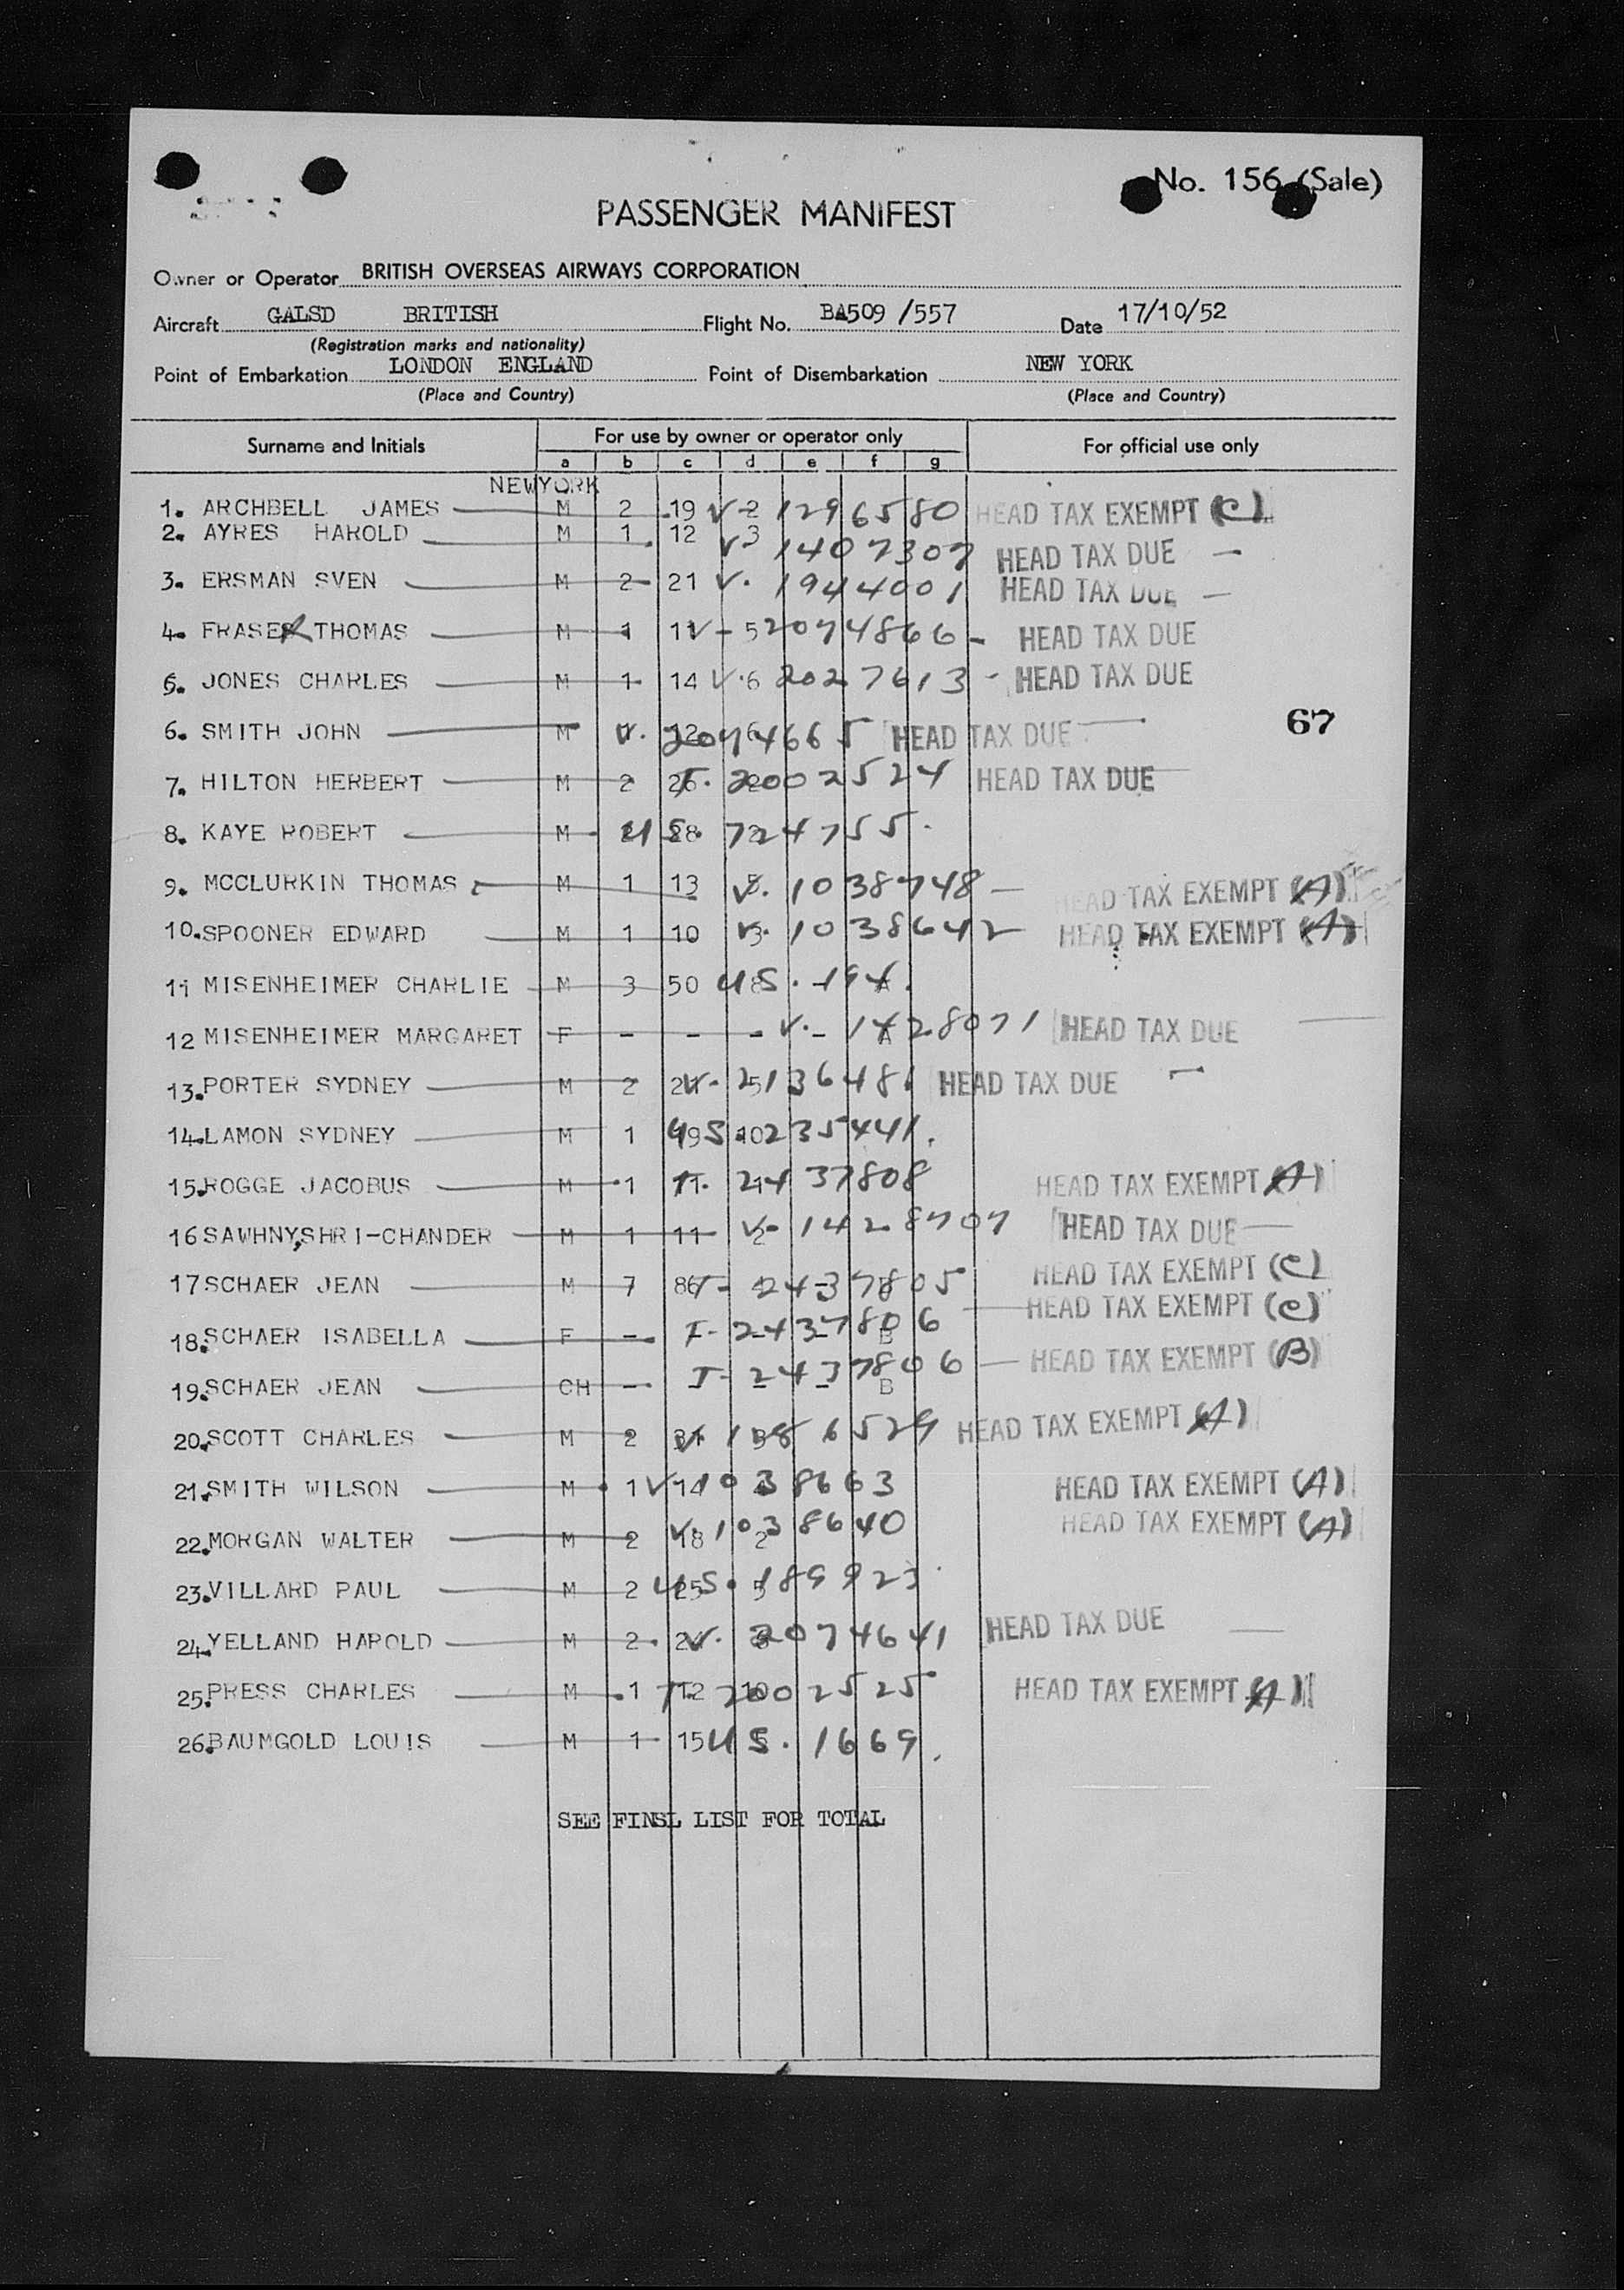 No. 156 (Sale)
PASSENGER MANIFEST
Owner or Operator BRITISH OVERSEAS AIRWAYS CORPORATION
Aircraft GALSD BRITISH Flight No. BA509 /557 Date 17/10/52
(Registration marks and nationality)
Point of Embarkation LONDON ENGLAND Point of Disembarkation NEW YORK
(Place and Country) (Place and Country)
Surname and Initials For use by owner or operator only For official use only
a b c d e f g
NEWYORK
1. ARCHBELL JAMES M 2 19 V- 2 1296580 HEAD TAX EXEMPT (C)
2. AYRES HAROLD M 1 12 3 V- 1407307 HEAD TAX DUE —
3. ERSMAN SVEN M 2 21 V. 1944001 HEAD TAX DUE —
4. FRASER THOMAS M 1 11 V- 5 2074866 - HEAD TAX DUE
5. JONES CHARLES M 1 14 V. 6 2027613 - HEAD TAX DUE
6. SMITH JOHN M V. 12 6 2074665 HEAD TAX DUE 67
7. HILTON HERBERT M 2 26 T. 2002524 HEAD TAX DUE
8. KAYE ROBERT M US. 28 724755.
9. MCCLURKIN THOMAS M 1 13 V. 1038748 — HEAD TAX EXEMPT (A)
10. SPOONER EDWARD M 1 10 V. 3 1038642 HEAD TAX EXEMPT (A)
11 MISENHEIMER CHARLIE M 3 50 US. 194.
12 MISENHEIMER MARGARET F - - - V. - 1428071 HEAD TAX DUE
13. PORTER SYDNEY M 2 V. 5 2136481 HEAD TAX DUE
14. LAMON SYDNEY M 1 19 US. 10 235441.
15. ROGGE JACOBUS M 1 11 T. 2437808 HEAD TAX EXEMPT (A)
16 SAWHNY,SHRI-CHANDER M 1 11 V- 2 1428707 HEAD TAX DUE
17 SCHAER JEAN M 7 86 T- 2437805 HEAD TAX EXEMPT (C)
18. SCHAER ISABELLA F - T- 2437806 B HEAD TAX EXEMPT (C)
19. SCHAER JEAN CH - T- 2437806 B HEAD TAX EXEMPT (B)
20. SCOTT CHARLES M 2 31 V 1386529 HEAD TAX EXEMPT (A)
21. SMITH WILSON M 1 V 14 1038663 HEAD TAX EXEMPT (A)
22. MORGAN WALTER M 2 18 V. 2 1038640 HEAD TAX EXEMPT (A)
23. VILLARD PAUL M 2 25 US. 5 189923
24. YELLAND HAROLD M 2 V. 2074641 HEAD TAX DUE
25. PRESS CHARLES M 1 12 T. 10 2002525 HEAD TAX EXEMPT (A)
26. BAUMGOLD LOUIS M 1 15 US. 1669.
SEE FINSL LIST FOR TOTAL